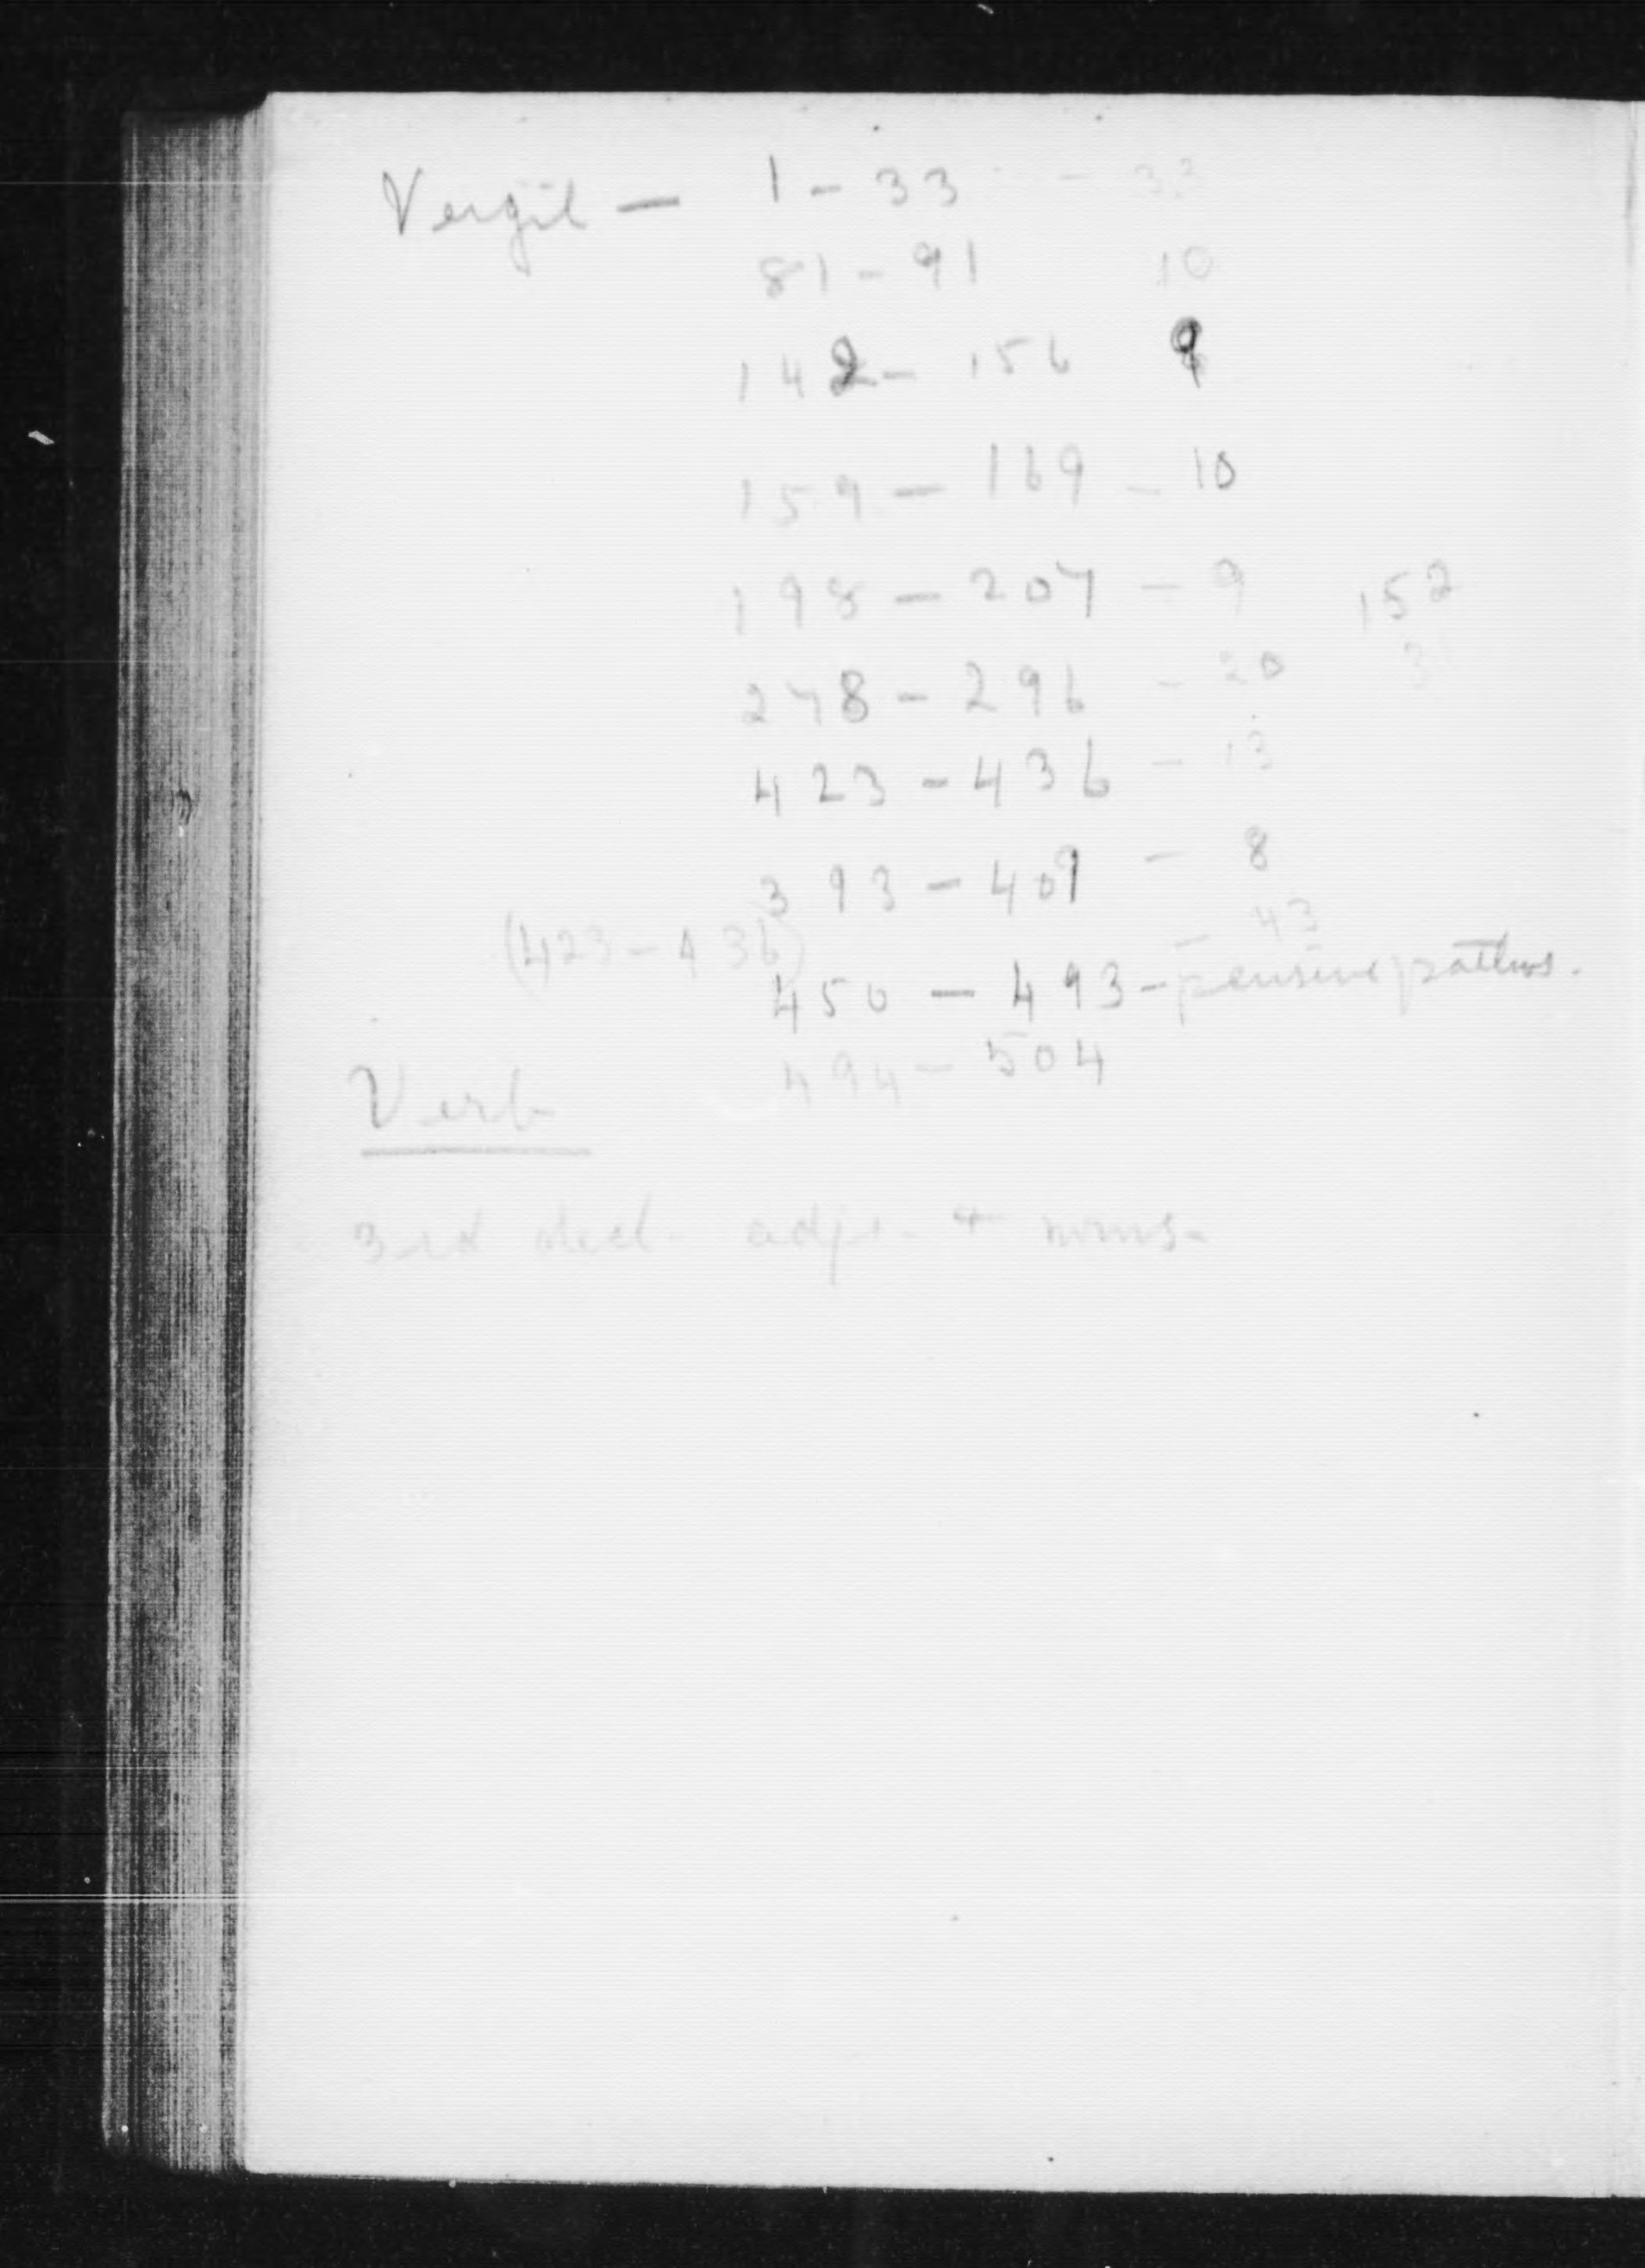 Vergil — 1 - 33 - 33
81 - 91 10
142 - 156 9
159 — 169 - 10
198 — 207 - 9 152
278 - 296 - 20 3
423 - 436 - 13
393 - 409 - 8
(423 - 436) - 43
450 — 493 - pensive pathos.
494 - 504
Verb
3rd decl. adjs. + nouns.